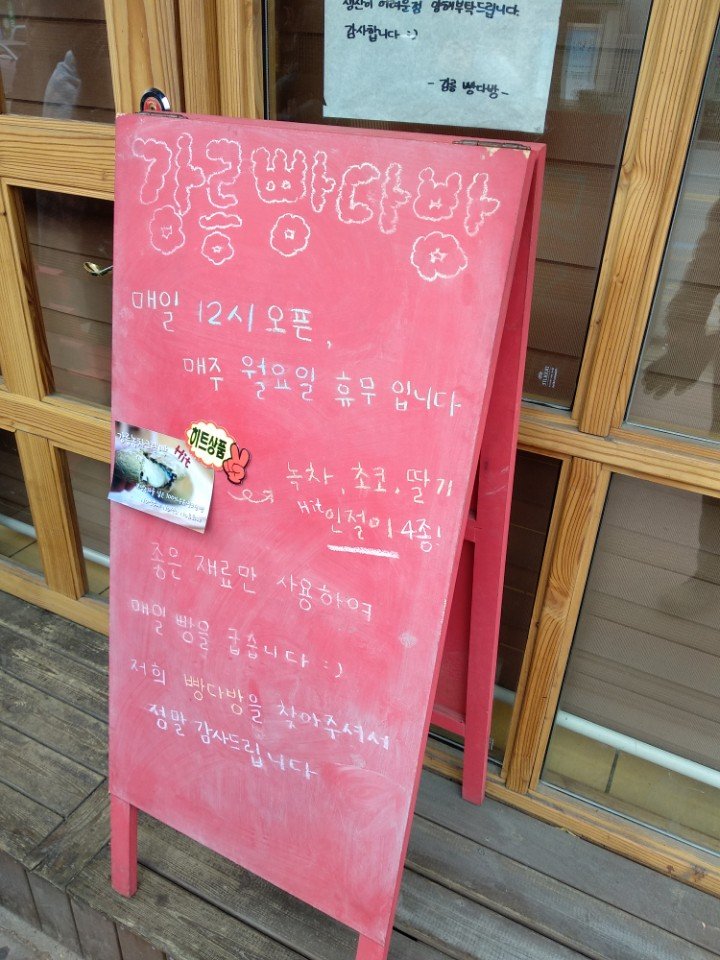 생산이 어려운점 양해부탁드립니다.
감사합니다 :)
- 강릉 빵다방 -
강릉빵다방
매일 12시 오픈,
매주 월요일 휴무 입니다
Hit
히트상품
녹차, 초코, 딸기
Hit 인절미 4종!
좋은 재료만 사용하여
매일 빵을 굽습니다 :)
저희 빵다방을 찾아주셔서
정말 감사드립니다